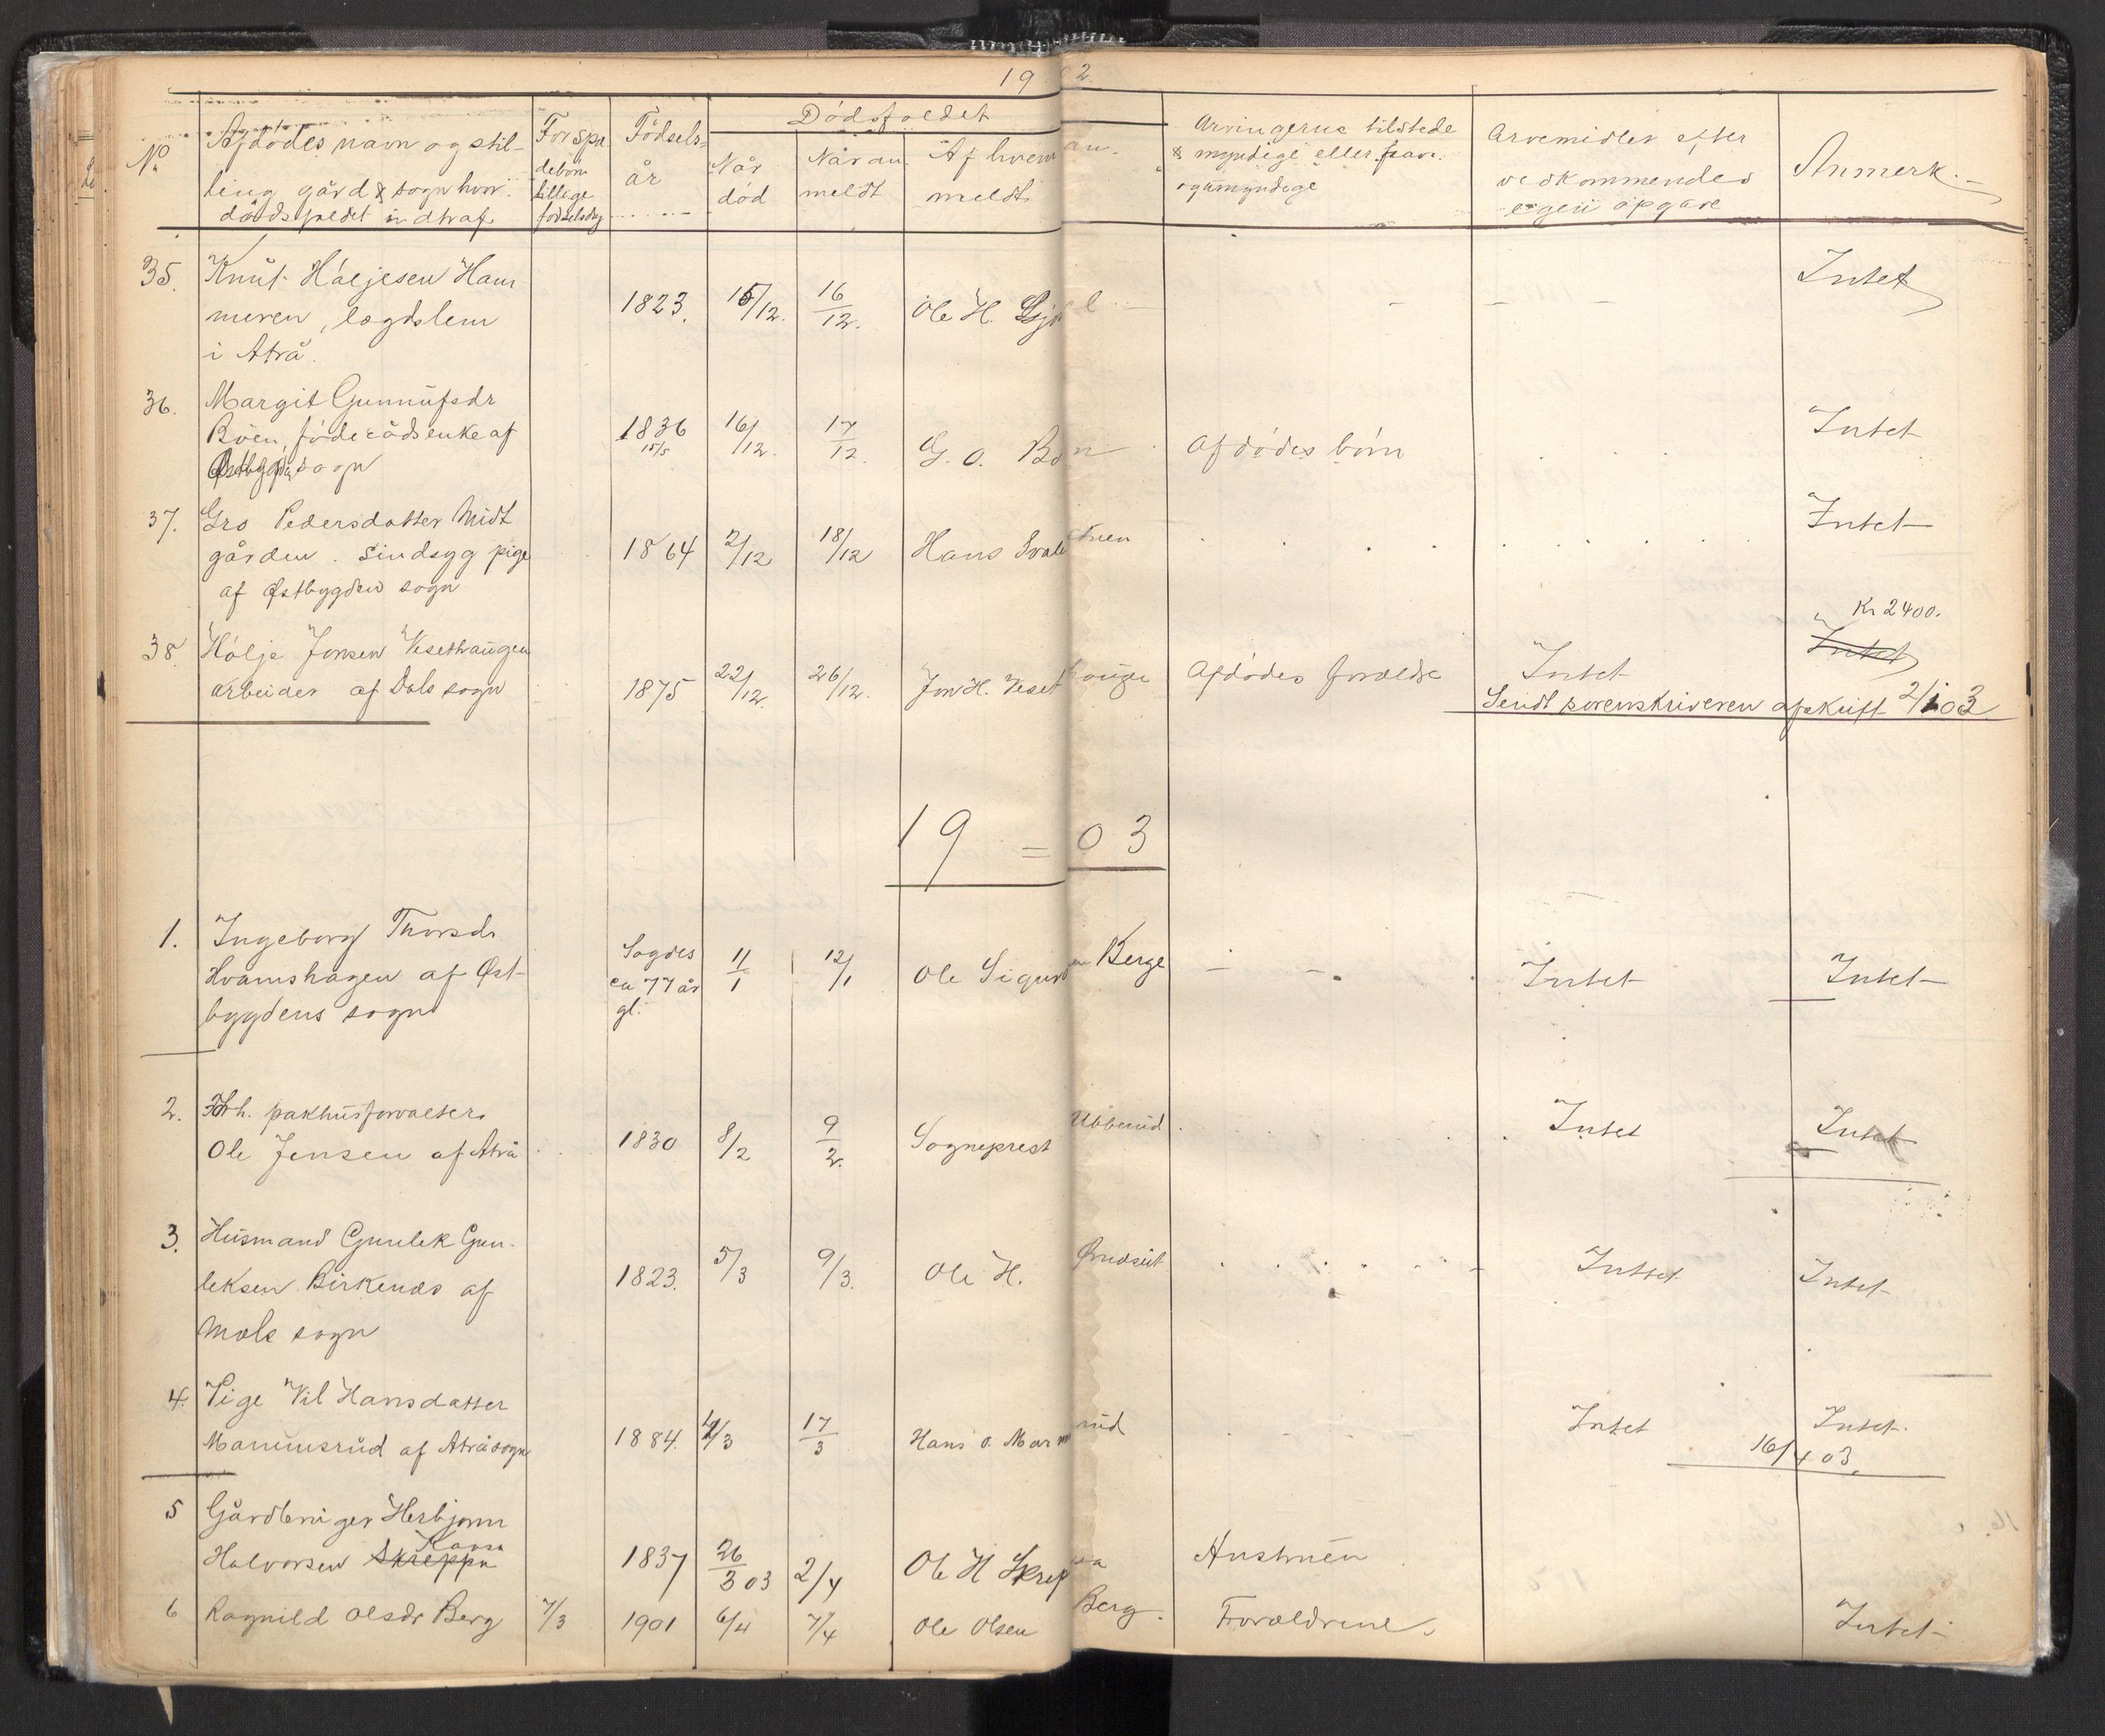 19 02
No
Afdødes navn og stil-
ling gård & sogn hvor
dødsfaldet indtraf
For spæ
debørn
tillige
fødselsdag
Fødsels-
år
Dødsfaldet
Når
død
Når an-
meldt
Af hvem an-
meldt
Arvingerne tilstede
myndige eller
Arvemidler efter
vedkommendes
egen opgave
Anmerk.
35. Knut Høljesen Ham
meren, lægdslem
i Atrå.
1823. 15/12. 16/12. Ole H. Intet
36. Margit Gunnufsdr
Böen, föderådsenke af
Östbygdens sogn
1836 15/5 16/12. 17/12. G. O. Bøn Afdødes børn Intet
37. Gro Pedersdatter Midt
gården. Sindsyg pige
af Østbygden sogn
1864 2/12 18/12 Hans Intet
38. Hölje Jonsen Vesethaugen
arbeider af Dals sogn
1875 22/12. 26/12. Jon H. Vesethauge Afdødes forældre Intet
Kr 2400.
Intet
Sendt sorenskriveren afskrift 2/1 03
19 = 03
1. Ingeborg Thorsdr
Hvamshagen af Øst-
bygdens sogn
Sagdes
ca 77 år
gl.
11/1 12/1 Ole Sigurdsen Berge Intet Intet
2. Fhh. pakhusforvalter
Ole Jensen af Atrå
1830 8/2 9/2. Sogneprest Ubberud Intet Intet
3. Husmand Gunlek Gun-
leksen Birkenes af
Mæls sogn
1823. 5/3 9/3. Ole H. Intet Intet
4. Pige Vil Hansdatter
Marumsrud af Atrå sogn
1884. 4/3 17/3 Hans O. Marumsrud Intet Intet.
16/4 03.
5 Gårdbruger Herbjørn
Halvorsen Skreppa Kaasa
1837 26/3 03 2/4 Ole H Skreppa Hustruen
6 Ragnild Olsdr Berg 7/3 1901 6/4 7/4 Ole Olsen Berg. Forældrene. Intet